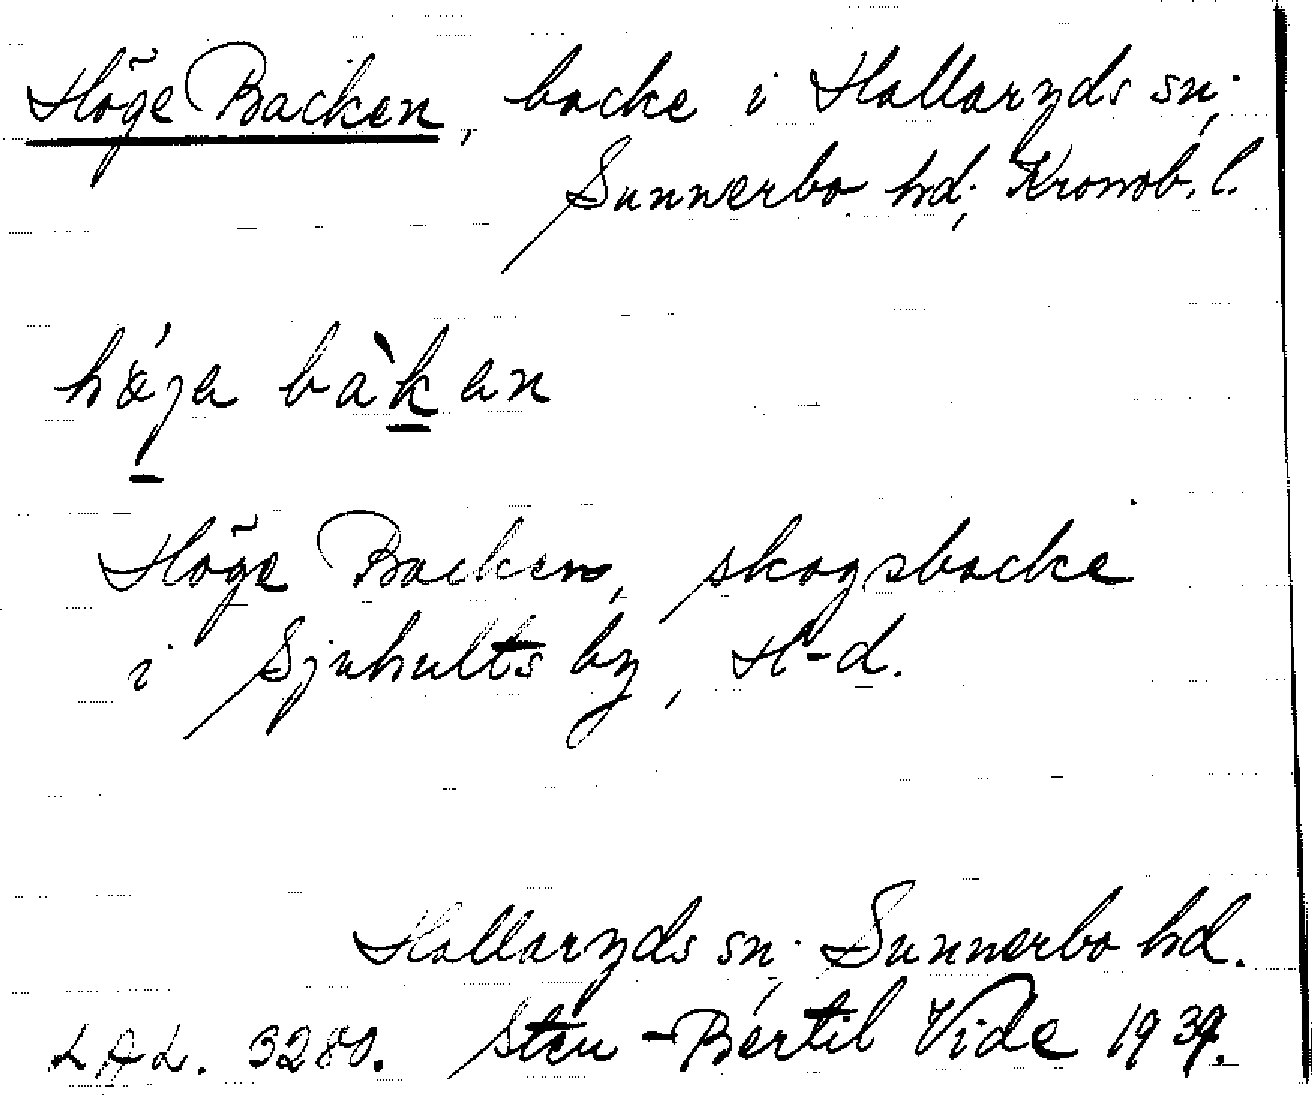 Höge Backen, backe i Hallaryds sn.
Sunnerbo hd, Kronob. l.
hǿga bàkan
Höge Backen, skogsbacke
i Sjuhults by, H-d.
Hallaryds sn. Sunnerbo hd.
LAL. 3280. Sten-Bertil Vide 1939.